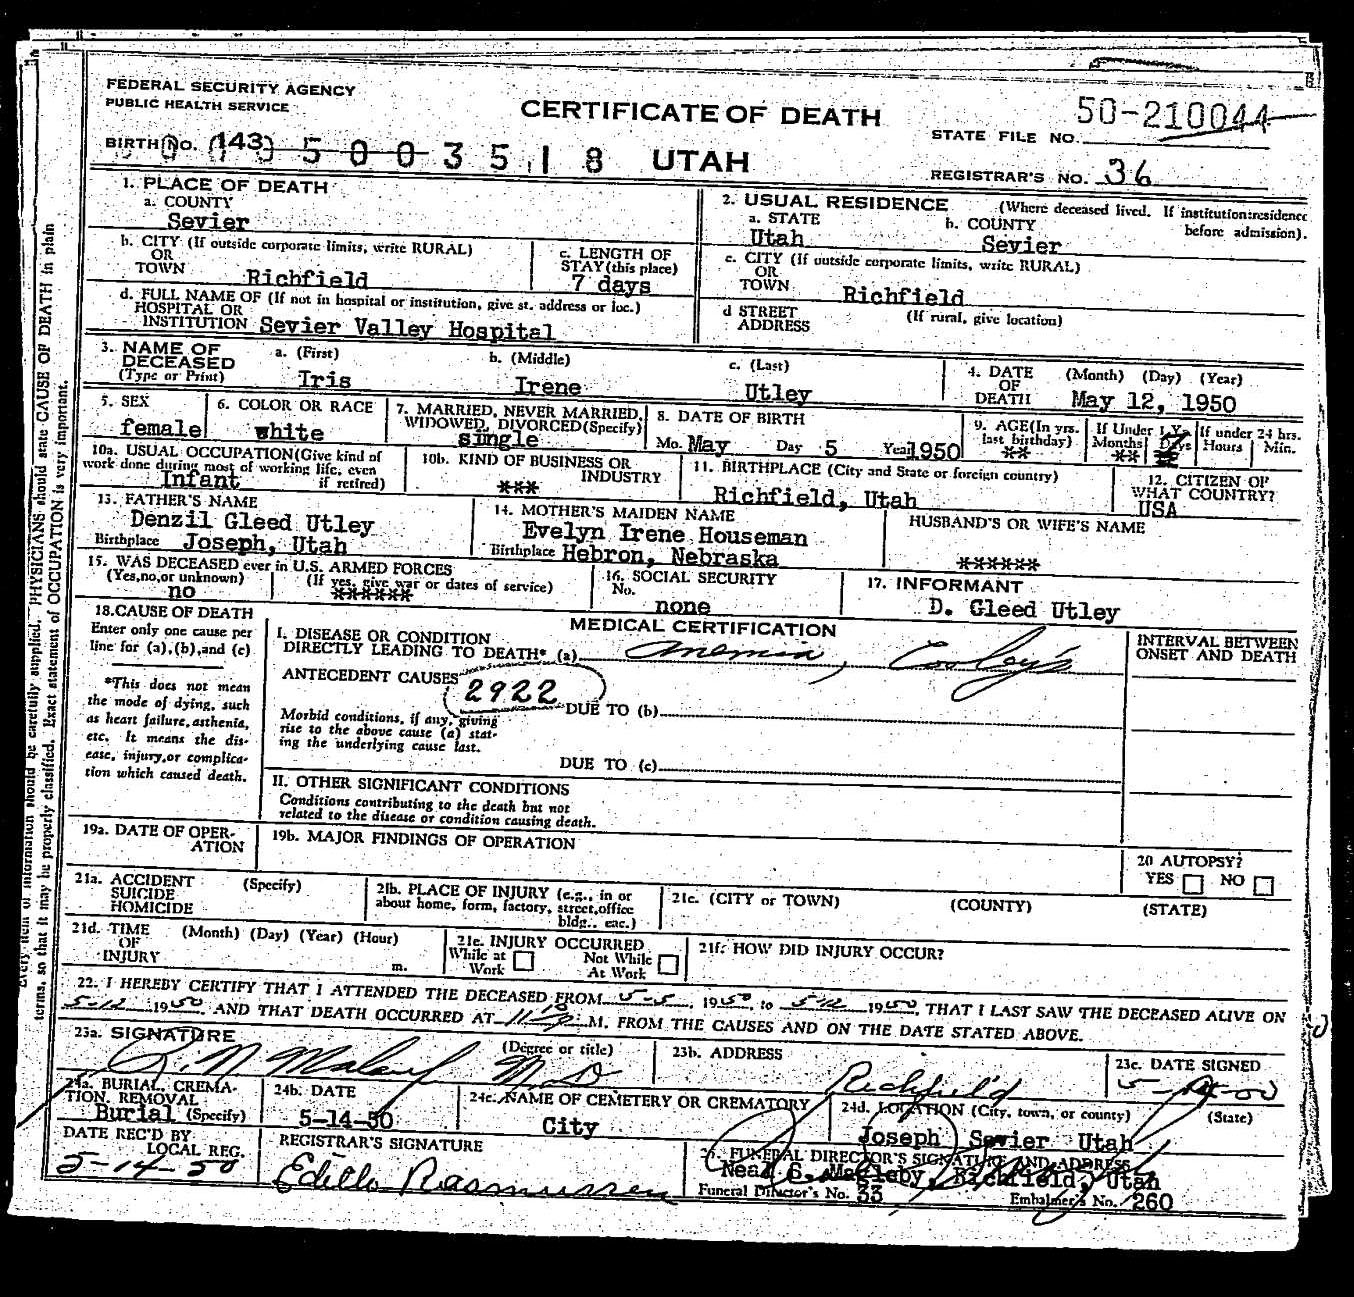 FEDERAL SECURITY AGENCY
PUBLIC HEALTH SERVICE
CERTIFICATE OF DEATH
50-210044
STATE FILE NO.
BIRTH NO. (143) 5 0 0 3 5 1 8 UTAH
REGISTRAR'S NO. 36
1. PLACE OF DEATH
a. COUNTY
Sevier
2. USUAL RESIDENCE (Where deceased lived. If institution:residence before admission).
a. STATE b. COUNTY
Utah Sevier
b. CITY (If outside corporate limits, write RURAL)
OR
TOWN Richfield
c. LENGTH OF
STAY (this place)
7 days
c. CITY (If outside corporate limits, write RURAL)
OR
TOWN Richfield
d. FULL NAME OF (If not in hospital or institution, give st. address or loc.)
HOSPITAL OR
INSTITUTION Sevier Valley Hospital
d STREET (If rural, give location)
ADDRESS
3. NAME OF
DECEASED
(Type or Print)
a. (First) b. (Middle) c. (Last)
Iris Irene Utley
4. DATE (Month) (Day) (Year)
OF
DEATH May 12, 1950
5. SEX
female
6. COLOR OR RACE
white
7. MARRIED, NEVER MARRIED,
WIDOWED, DIVORCED(Specify)
single
8. DATE OF BIRTH
Mo. May Day 5 Year 1950
9. AGE(In yrs.
last birthday)
**
If Under 1 Yr.
Months Days
**
If under 24 hrs.
Hours Min.
10a. USUAL OCCUPATION(Give kind of
work done during most of working life, even
if retired)
Infant
10b. KIND OF BUSINESS OR
INDUSTRY
***
11. BIRTHPLACE (City and State or foreign country)
Richfield, Utah
12. CITIZEN OF
WHAT COUNTRY?
USA
13. FATHER'S NAME
Denzil Gleed Utley
Birthplace Joseph, Utah
14. MOTHER'S MAIDEN NAME
Evelyn Irene Houseman
Birthplace Hebron, Nebraska
HUSBAND'S OR WIFE'S NAME
******
15. WAS DECEASED ever in U.S. ARMED FORCES
(Yes,no,or unknown) (If yes, give war or dates of service)
no ******
16. SOCIAL SECURITY
No.
none
17. INFORMANT
D. Gleed Utley
18.CAUSE OF DEATH
Enter only one cause per
line for (a),(b),and (c)
*This does not mean
the mode of dying, such
as heart failure, asthenia,
etc. It means the dis-
ease, injury,or complica-
tion which caused death.
MEDICAL CERTIFICATION
I. DISEASE OR CONDITION
DIRECTLY LEADING TO DEATH* (a) Anemia, Cooley's
ANTECEDENT CAUSES
2922
DUE TO (b)
Morbid conditions, if any, giving
rise to the above cause (a) stat-
ing the underlying cause last.
DUE TO (c)
II. OTHER SIGNIFICANT CONDITIONS
Conditions contributing to the death but not
related to the disease or condition causing death.
INTERVAL BETWEEN
ONSET AND DEATH
19a. DATE OF OPER-
ATION
19b. MAJOR FINDINGS OF OPERATION
20 AUTOPSY?
YES NO
21a. ACCIDENT (Specify)
SUICIDE
HOMICIDE
21b. PLACE OF INJURY (e.g., in or
about home, form, factory, street,office
bldg., eac.)
21c. (CITY or TOWN) (COUNTY) (STATE)
21d. TIME (Month) (Day) (Year) (Hour)
OF
INJURY m.
21e. INJURY OCCURRED
While at Not While
Work At Work
21f. HOW DID INJURY OCCUR?
22. I HEREBY CERTIFY THAT I ATTENDED THE DECEASED FROM 5-5, 1950 to 5-12 1950, THAT I LAST SAW THE DECEASED ALIVE ON
5-12 1950, AND THAT DEATH OCCURRED AT M. FROM THE CAUSES AND ON THE DATE STATED ABOVE.
23a. SIGNATURE (Degree or title)
M.D.
23b. ADDRESS
Richfield
23c. DATE SIGNED
24a. BURIAL, CREMA-
TION, REMOVAL
Burial (Specify)
24b. DATE
5-14-50
24c. NAME OF CEMETERY OR CREMATORY
City
24d. LOCATION (City, town, or county) (State)
Joseph Sevier Utah
DATE REC'D BY
LOCAL REG.
5-14-50
REGISTRAR'S SIGNATURE
Edillo Rasmussen
FUNERAL DIRECTOR'S SIGNATURE AND ADDRESS
Neal S. Magleby, Richfield, Utah
Funeral Director's No. 33 Embalmer's No. 260
Every item of information should be carefully supplied. PHYSICIANS should state CAUSE OF DEATH in plain
terms, so that it may be properly classified. Exact statement of OCCUPATION is very important.